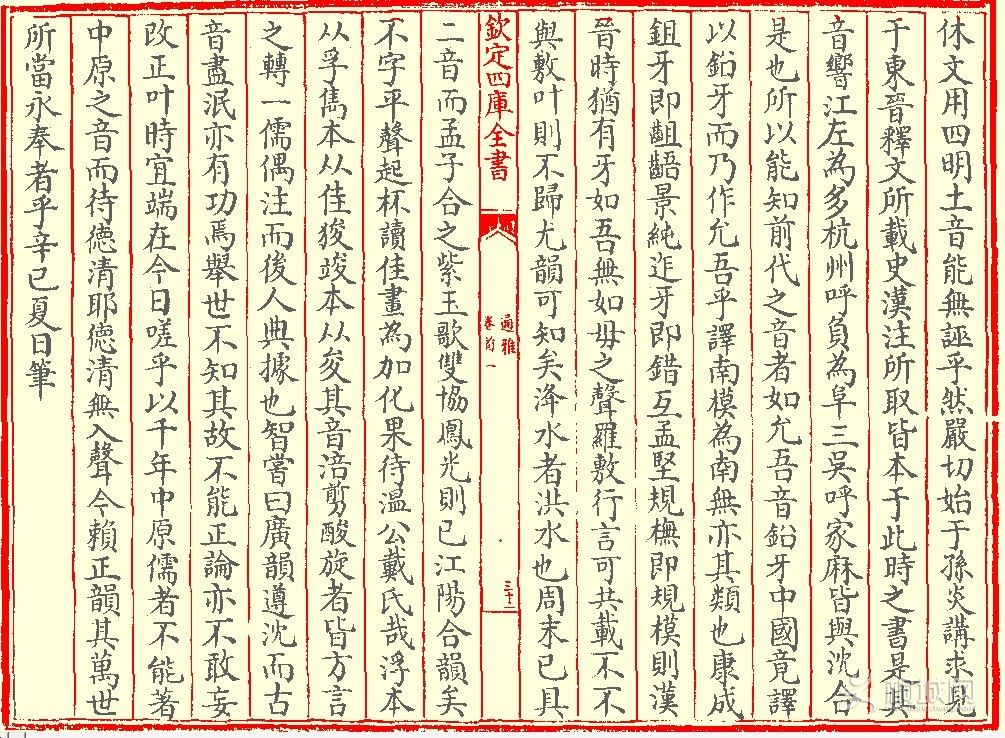 休文用四明土音能無誣乎然嚴切始于孫炎講求見
于東晉釋文所載史漢注所取皆本于此時之書是其
音響江左為多杭州呼負為阜三吳呼家麻皆與沈合
是也所以能知前代之音者如允吾音鉛牙中國竟譯
以鉛牙而乃作允吾乎譯南模為南無亦其類也康成
鉏牙即齟齬景純迕牙即錯互孟堅規橅即規模則漢
晉時猶有牙如吾無如毋之聲羅敷行言可共載不不
與敷叶則不歸尤韻可知矣洚水者洪水也周末已具
欽定四庫全書
通雅
卷首一
三十二
二音而孟子合之紫玉歌雙協鳳光則已江陽合韻矣
不字平聲起杯讀佳畫為加化果待温公戴氏哉浮本
从孚雋本从隹狻竣本从夋其音涪剪酸旋者皆方言
之轉一儒偶注而後人典據也智嘗曰廣韻遵沈而古
音盡泯亦有功焉舉世不知其故不能正論亦不敢妄
改正叶時宜端在今日嗟乎以千年中原儒者不能著
中原之音而待德清耶德清無入聲今賴正韻其萬世
所當永奉者乎辛巳夏日筆